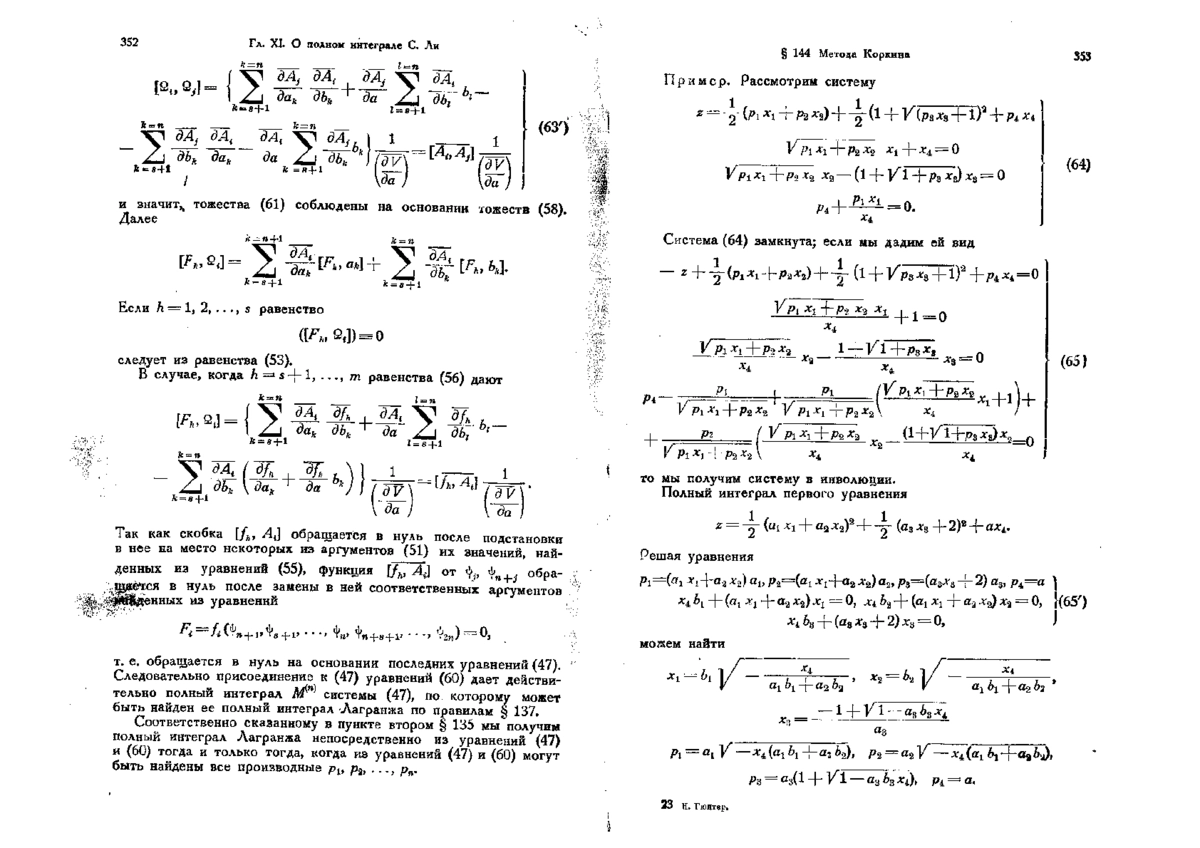 352
Гл. XI. О полном интеграле С. Ли
[Ω_i, Ω_j] = { ∑_{k=s+1}^{k=n} \overline{∂A_j}/∂a_k \overline{∂A_i}/∂b_k + \overline{∂A_j}/∂a ∑_{l=s+1}^{l=n} \overline{∂A_i}/∂b_l b_l —
— ∑_{k=s+1}^{k=n} \overline{∂A_j}/∂b_k \overline{∂A_i}/∂a_k — \overline{∂A_i}/∂a ∑_{k=s+1}^{k=n} \overline{∂A_j}/∂b_k b_k } 1/(\overline{∂V}/∂a) = [\overline{A_i, A_j}] 1/(\overline{∂V}/∂a) (63′)
и значит, тожества (61) соблюдены на основании тожеств (58).
Далее
[F_h, Ω_i] = ∑_{k=s+1}^{k=n+1} \overline{∂A_i}/∂a_k [F_h, a_k] + ∑_{k=s+1}^{k=n} \overline{∂A_i}/∂b_k [F_h, b_k].
Если h = 1, 2, . . ., s равенство
([F_h, Ω_i]) = 0
следует из равенства (53).
В случае, когда h = s + 1, . . ., m равенства (56) дают
[F_h, Ω_i] = { ∑_{k=s+1}^{k=n} \overline{∂A_i}/∂a_k \overline{∂f_h}/∂b_k + \overline{∂A_i}/∂a ∑_{l=s+1}^{l=n} \overline{∂f_h}/∂b_l b_l —
— ∑_{k=s+1}^{k=n} \overline{∂A_i}/∂b_k ( \overline{∂f_h}/∂a_k + \overline{∂f_h}/∂a b_k ) } 1/(\overline{∂V}/∂a) = [\overline{f_h, A_i}] 1/(\overline{∂V}/∂a).
Так как скобка [f_h, A_i] обращается в нуль после подстановки
в нее на место некоторых из аргументов (51) их значений, най-
денных из уравнений (55), функция [\overline{f_h, A_i}] от ψ_j, ψ_{n+j} обра-
щается в нуль после замены в ней соответственных аргументов
найденных из уравнений
F_i = f_i (ψ_{n+1}, ψ_{s+1}, . . ., ψ_n, ψ_{n+s+1}, . . ., ψ_{2n}) = 0,
т. е. обращается в нуль на основании последних уравнений (47).
Следовательно присоединение к (47) уравнений (60) дает действи-
тельно полный интеграл M^{(n)} системы (47), по которому может
быть найден ее полный интеграл Лагранжа по правилам § 137.
Соответственно сказанному в пункте втором § 135 мы получим
полный интеграл Лагранжа непосредственно из уравнений (47)
и (60) тогда и только тогда, когда из уравнений (47) и (60) могут
быть найдены все производные p_1, p_2, . . ., p_n.
§ 144 Метода Коркина
353
Пример. Рассмотрим систему
z = 1/2 (p_1 x_1 + p_2 x_2) + 1/2 (1 + √(p_3 x_3 + 1))² + p_4 x_4
√(p_1 x_1 + p_2 x_2) x_1 + x_4 = 0
√(p_1 x_1 + p_2 x_2) x_2 — (1 + √(1 + p_3 x_3)) x_3 = 0 (64)
p_4 + p_1 x_1/x_4 = 0.
Система (64) замкнута; если мы дадим ей вид
— z + 1/2 (p_1 x_1 + p_2 x_2) + 1/2 (1 + √(p_3 x_3 + 1))² + p_4 x_4 = 0
√(p_1 x_1 + p_2 x_2) x_1/x_4 + 1 = 0
√(p_1 x_1 + p_2 x_2)/x_4 x_2 — (1 — √(1 + p_3 x_3))/x_4 x_3 = 0 (65)
p_4 — p_1/√(p_1 x_1 + p_2 x_2) + p_1/√(p_1 x_1 + p_2 x_2) ( √(p_1 x_1 + p_2 x_2)/x_4 x_1 + 1 ) +
+ p_2/√(p_1 x_1 + p_2 x_2) ( √(p_1 x_1 + p_2 x_2)/x_4 x_2 — (1 + √(1 + p_3 x_3)) x_2/x_4 = 0
то мы получим систему в инволюции.
Полный интеграл первого уравнения
z = 1/2 (a_1 x_1 + a_2 x_2)² + 1/2 (a_3 x_3 + 2)² + a x_4.
Решая уравнения
p_1 = (a_1 x_1 + a_2 x_2) a_1, p_2 = (a_1 x_1 + a_2 x_2) a_2, p_3 = (a_3 x_3 + 2) a_3, p_4 = a
x_4 b_1 + (a_1 x_1 + a_2 x_2) x_1 = 0, x_4 b_2 + (a_1 x_1 + a_2 x_2) x_2 = 0, (65′)
x_4 b_3 + (a_3 x_3 + 2) x_3 = 0,
можем найти
x_1 = b_1 √(— x_4/(a_1 b_1 + a_2 b_2)), x_2 = b_2 √(— x_4/(a_1 b_1 + a_2 b_2)),
x_3 = (—1 + √(1 — a_3 b_3 x_4))/a_3
p_1 = a_1 √(—x_4 (a_1 b_1 + a_2 b_2)), p_2 = a_2 √(—x_4 (a_1 b_1 + a_2 b_2)),
p_3 = a_3 (1 + √(1 — a_3 b_3 x_4)), p_4 = a.
23 Н. Гюнтер.